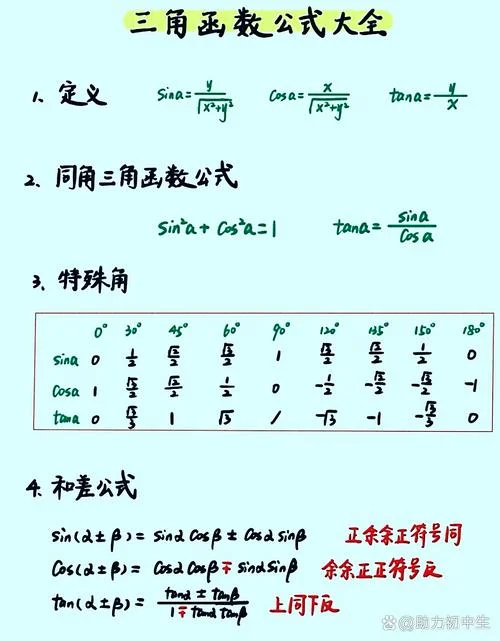 三角函数公式大全
1、定义 sina=y/√x²+y² cosa=x/√x²+y² tana=y/x
2、同角三角函数公式
sin²a+cos²a=1 tana=sina/cosa
3、特殊角
0° 30° 45° 60° 90° 120° 135° 150° 180°
sina 0 1/2 √2/2 √3/2 1 √3/2 √2/2 1/2 0
cosa 1 √3/2 √2/2 1/2 0 -1/2 -√2/2 -√3/2 -1
tana 0 √3/3 1 √3 / -√3 -1 -√3/3 0
4、和差公式
sin(α±β)=sinαcosβ±cosαsinβ 正余余正符号同
cos(α±β)=cosαcosβ∓sinαsinβ 余余正正符号反
tan(α±β)=tanα±tanβ/1∓tanαtanβ 上同下反
@助力初中生